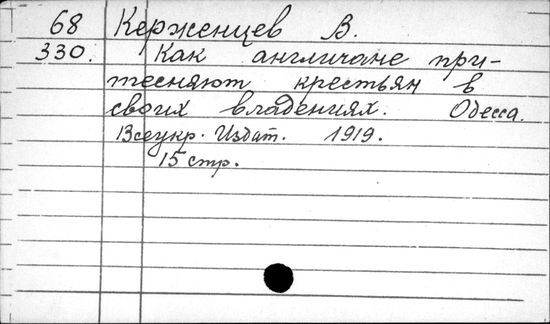 68 Керженцев В.
330. Как англичане при-
тесняют крестьян в
своих владениях. Одесса.
Всеукр. Издат. 1919.
15 стр.